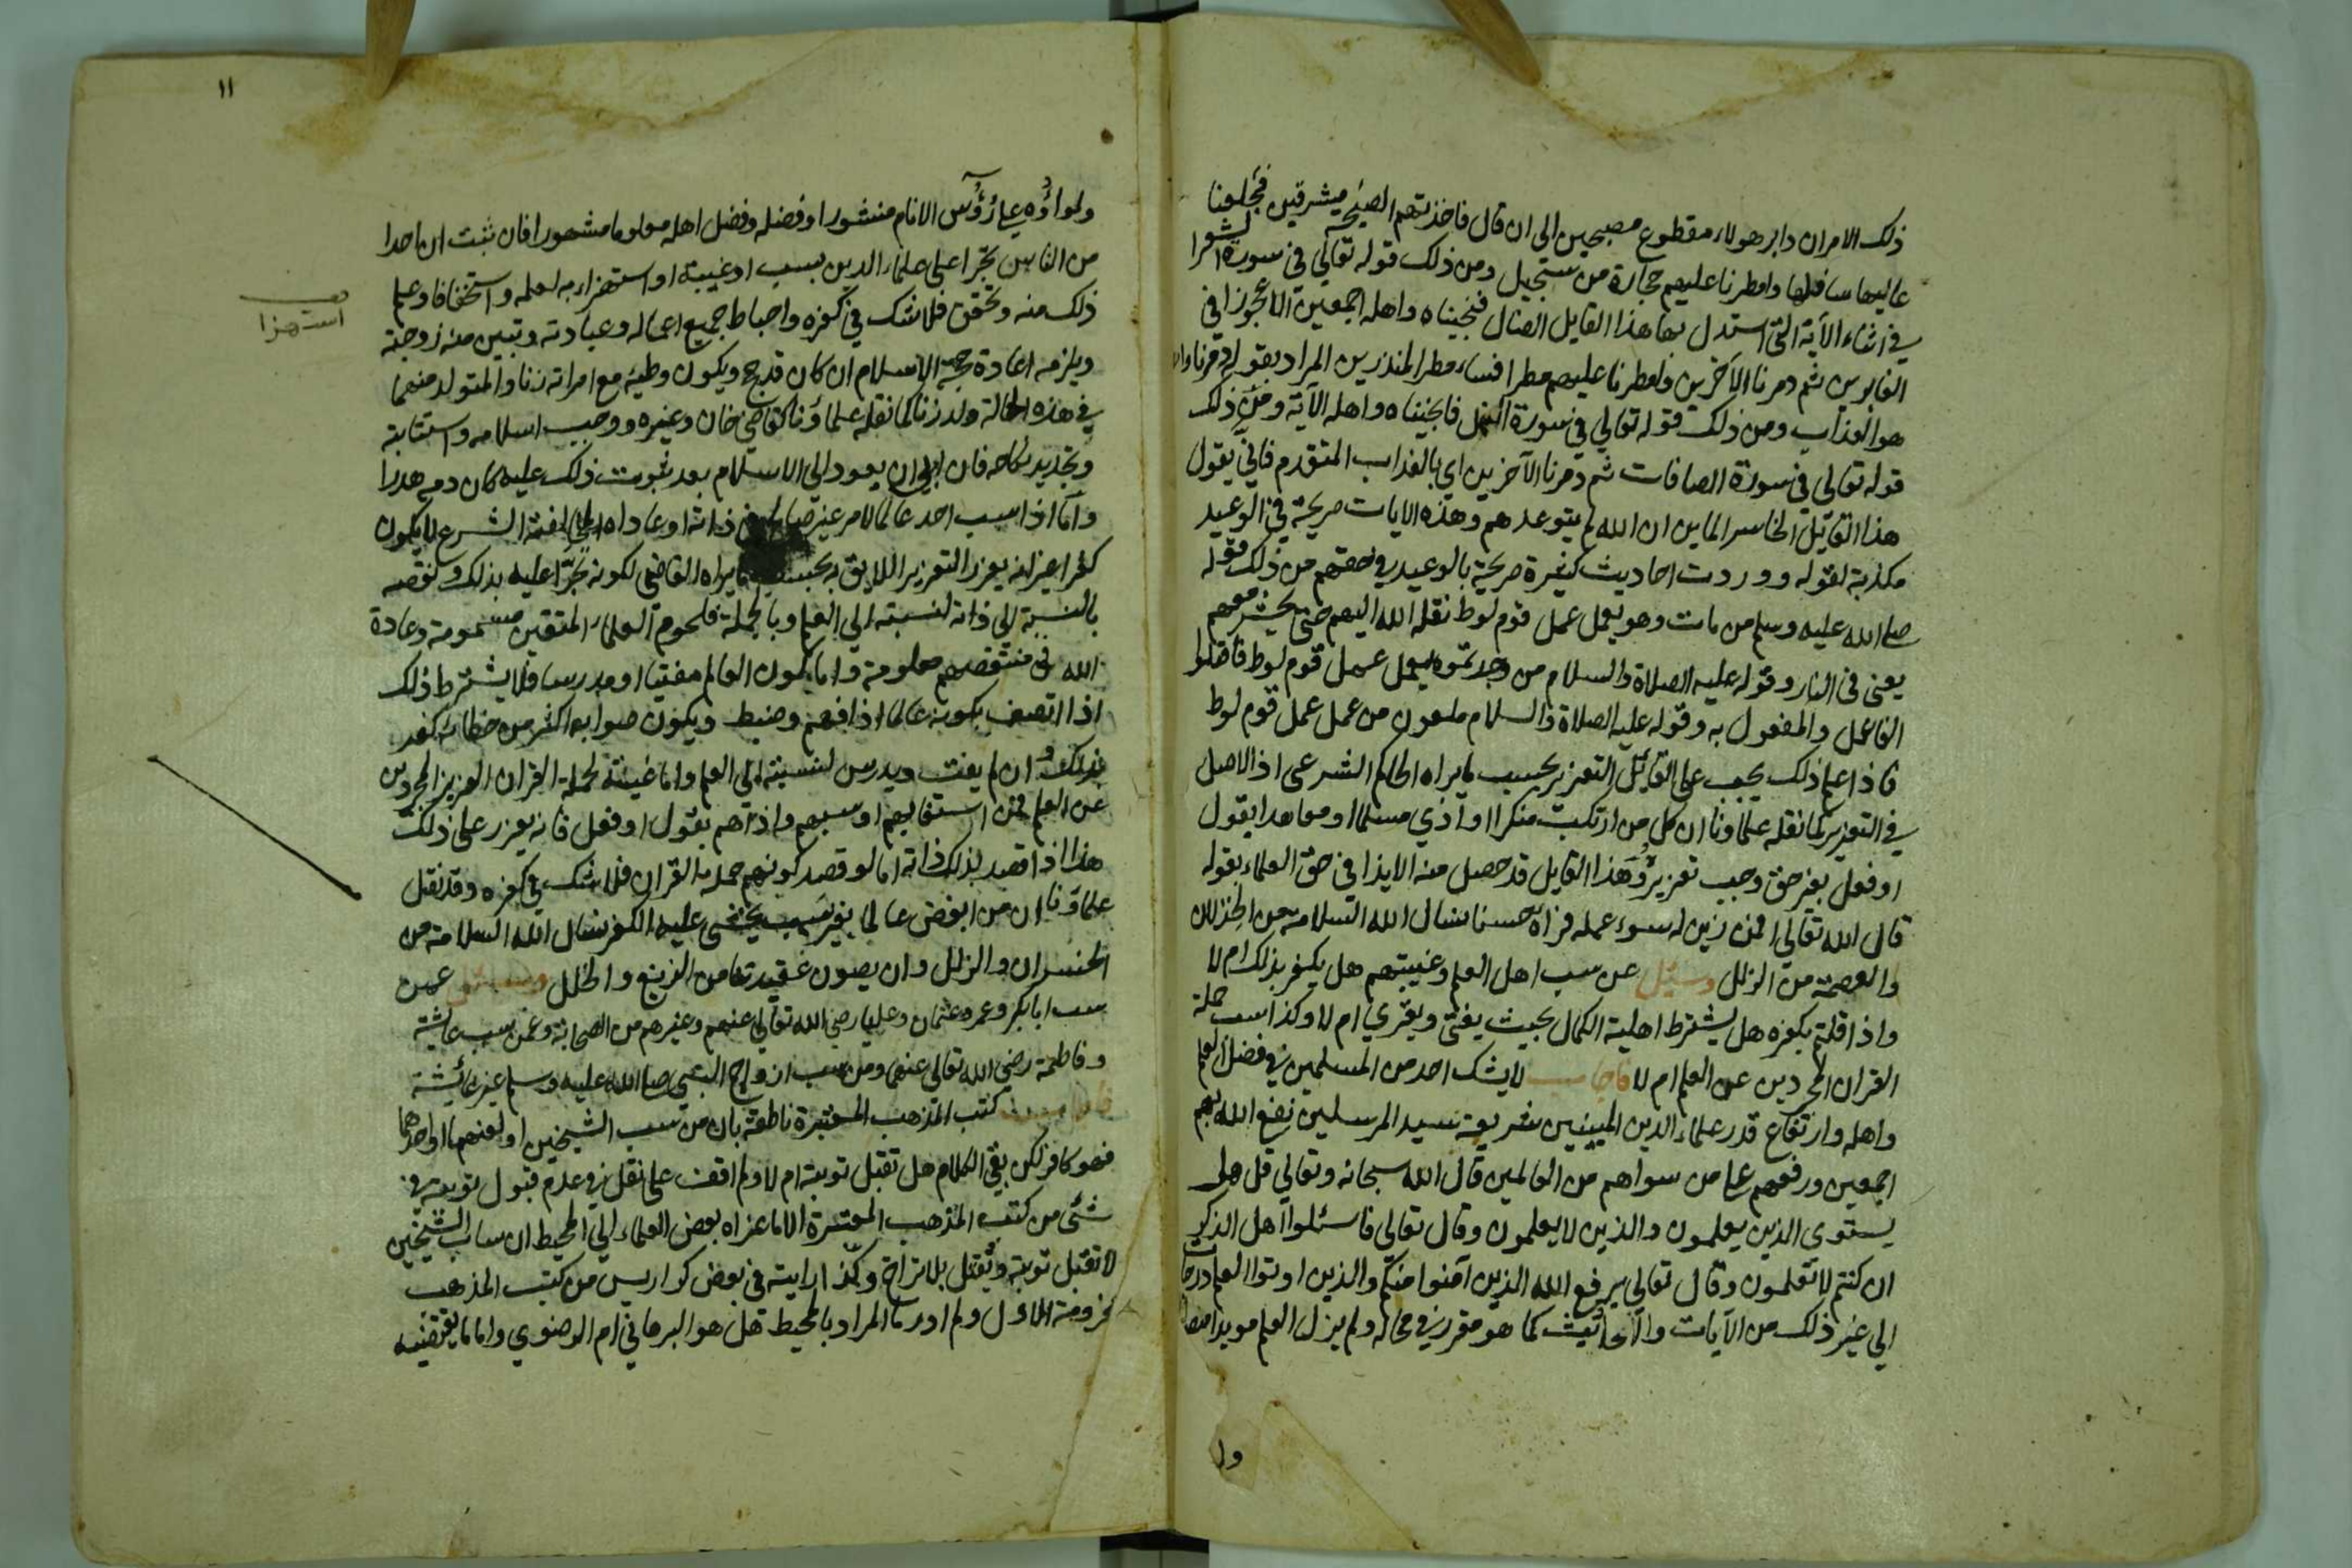 ذلك الامر ان دابر هولاء مقطوع مصبحين الى ان قال فاخذتهم الصيحة مشرقين فجعلنا
عاليها سافلها وامطرنا عليهم حجارة من سجيل ومن ذلك قوله تعالي في سورة الشعرا
في اثناء الآية التي استدل بها هذا القايل الضال فنجيناه واهله اجمعين الا عجوزا في
الغابرين ثم دمرنا الآخرين وامطرنا عليهم مطرا فساء مطر المنذرين المراد بقوله دمرنا
هو العذاب ومن ذلك قوله تعالي في سورة النمل فانجيناه واهله الآية ومن ذلك
قوله تعالي في سورة الصافات ثم دمرنا الآخرين اي بالعذاب المتقدم فاني يقول
هذا القايل الخاسر الماين ان الله لم يتوعدهم وهذه الايات صريحة في الوعيد
مكذبة لقوله ووردت احاديث كثيرة صريحة بالوعيد في حقهم من ذلك قوله
صلى الله عليه وسلم من مات وهو يعمل عمل قوم لوط نقله الله اليهم حتى يحشر معهم
يعني في النار وقوله عليه الصلاة والسلام من وجدتموه يعمل عمل قوم لوط فاقتلوا
الفاعل والمفعول به وقوله عليه الصلاة والسلام ملعون من عمل عمل قوم لوط
فاذا علم ذلك يجب على القائل التعزير بحسب ما يراه الحاكم الشرعي اذ الاصل
في التعزير كما نقله علماؤنا ان كل من ارتكب منكرا او آذي مسلما او معاهدا بقول
او فعل بغير حق وجب تعزيره وهذا القايل قد حصل منه الايذا في حق العلماء بقوله
قال الله تعالي افمن زين له سوء عمله فرآه حسنا نسال الله السلامة من الخذلان
والعصمة من الزلل وسئل عن سب اهل العلم وغيبتهم هل يكفر بذلك ام لا
واذا قلتم بكفره هل يشترط اهلية الكمال بحيث يفتي ويقري ام لا وكذا سب حملة
القران المجردين عن العلم ام لا فاجاب لا يشك احد من المسلمين في فضل العلم
واهله وارتفاع قدر علماء الدين المبينين شريعة سيد المرسلين نفع الله بهم
اجمعين ورفعهم على من سواهم من العالمين قال الله سبحانه وتعالي قل هل
يستوى الذين يعلمون والذين لا يعلمون وقال تعالى فاسئلوا اهل الذكر
ان كنتم لا تعلمون وقال تعالي يرفع الله الذين آمنوا منكم والذين اوتوا العلم درجات
الي غير ذلك من الآيات والاحاديث كما هو مقرر في محاله ولم يزل العلم مويدا
ولو
١١
ولواؤه على رؤس الانام منشورا وفضله وفضل اهله معلوما مشهورا فان ثبت ان احدا
من الناس تجرا على علماء الدين بسب او غيبة او استهزاء به لعلمه واستخفافا وعلم
استهزا
ذلك منه وتحقق فلا شك في كفره واحباط جميع اعماله وعبادته وتبين منه زوجته
ويلزمه اعادة حجة الاسلام ان كان قد حج ويكون وطيه مع امراته زنا والمتولد منهما
في هذه الحالة ولد زنا كما نقله علماؤنا كقاضي خان وغيره ووجب اسلامه واستتابته
وتجديد نكاحه فان ابي ان يعود الي الاسلام بعد ثبوت ذلك عليه كان دمه هدرا
واما اذا سب احد عالما لامر غير صالح في ذاته او عاداه لمخالفته الشرع لا يكون
كفرا غير انه يعزر التعزير اللايق به بحسب ما يراه القاضي لكونه تجرا عليه بذلك ونقصه
بالنسبة الي ذاته لنسبته الي العلم وبالجملة فلحوم العلماء المتقين مسمومة وعادة
الله في منتقصهم معلومة واما كون العالم مفتيا او مدرسا فلا يشترط ذلك
اذا اتصف بكونه عالما اذا فهم وضبط ويكون صوابه اكثر من خطائه كفر
بذلك وان لم يفت ويدرس لنسبته الى العلم واما غيبته لحملة القران العزيز المجردين
عن العلم فمن استغابهم او سبهم واذاهم بقول او فعل فانه يعزر على ذلك
هذا اذا قصد بذلك ذاته اما لو قصد كونهم حملة القران فلا شك في كفره وقد نقل
علماؤنا ان من ابغض عالما بغير سبب يخشى عليه الكفر نسال الله السلامة من
الخسران والزلل وان يصون عقيدتنا من الزيغ والخلل وسئل عمن
سب ابابكر وعمر وعثمان وعليا رضي الله تعالي عنهم وغيرهم من الصحابة وعمن سب عائشة
وفاطمة رضي الله تعالى عنهما ومن سب ازواج النبي صلى الله عليه وسلم غير عائشة
فاجاب كتب المذهب المعتبرة ناطقة بان من سب الشيخين او لعنهما او احدهما
فهو كافر لكن بقي الكلام هل تقبل توبته ام لا ولم اقف على نقل في عدم قبول توبته في
شئ من كتب المذهب المعتبرة الا ما عزاه بعض العلماء الي المحيط ان ساب الشيخين
لا تقبل توبته ويقتل بلا تراخ وكذا رايته في بعض كراريس من كتب المذهب
مخرومة الاول ولم ادر ما المراد بالمحيط هل هو البرهاني ام الرضوي واما ما يقتضيه